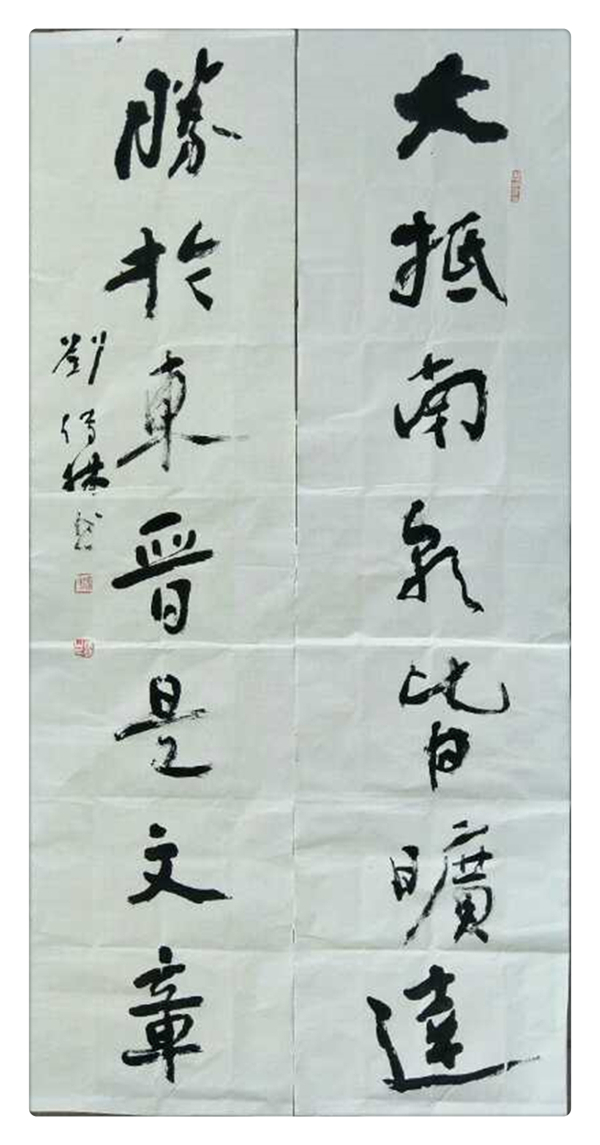 大抵南朝皆曠達
勝於東晉是文章
劉